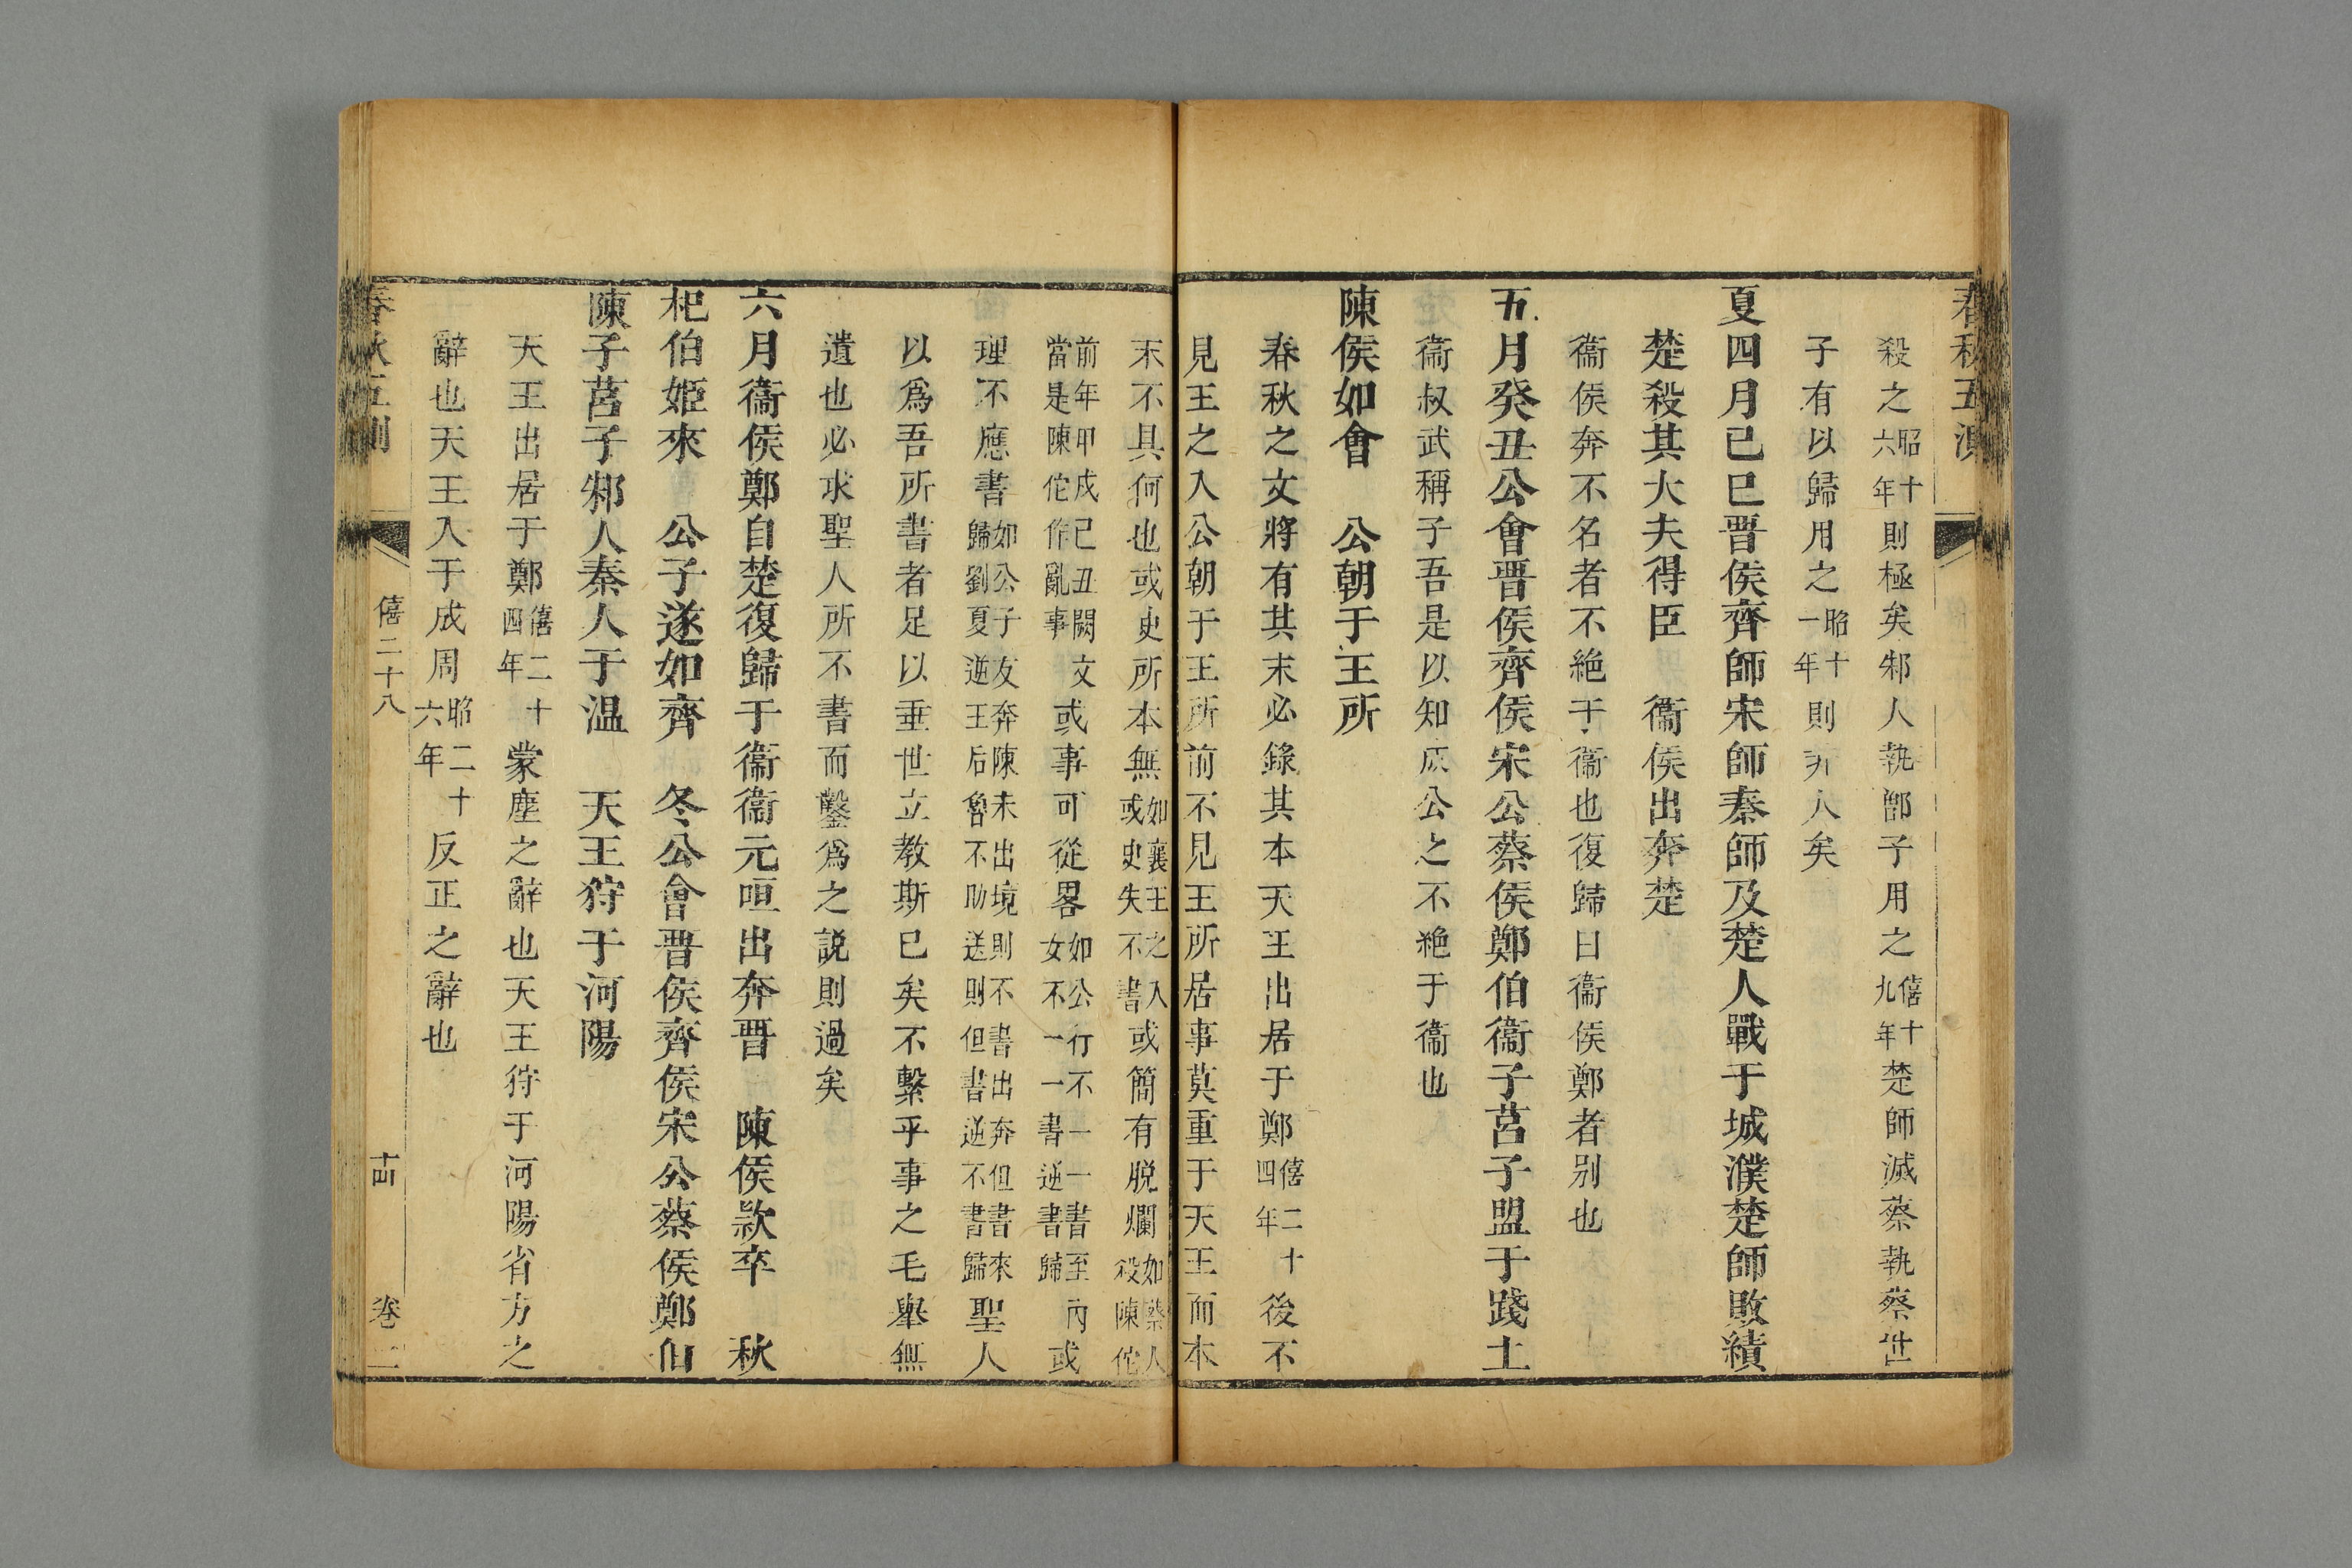 春秋五測
殺之昭十六年則極矣邾人執鄫子用之僖十九年楚師滅蔡執蔡世
子有以歸用之昭十一年則非人矣
夏四月己巳晉侯齊師宋師秦師及楚人戰于城濮楚師敗績
楚殺其大夫得臣　衞侯出奔楚
衞侯奔不名者不絶于衞也復歸曰衞侯鄭者别也
五月癸丑公會晉侯齊侯宋公蔡侯鄭伯衞子莒子盟于踐土
衞叔武稱子吾是以知成公之不絶于衞也
陳侯如會　公朝于王所
春秋之文將有其末必錄其本天王出居于鄭僖二十四年後不
見王之入公朝于王所前不見王所居事莫重于天王而本
末不具何也或史所本無如襄王之入或史失不書或簡有脱爛如蔡人殺陳佗
前年甲戍已丑闕文當是陳佗作亂事或事可從畧如公行不一一書至女不一一書逆書歸內或
理不應書如公子友奔陳未出境則不書出奔但書來歸劉夏逆王后魯不助送則但書逆不書歸聖人
以爲吾所書者足以垂世立教斯已矣不繫乎事之毛舉無
遺也必求聖人所不書而鑿爲之説則過矣
六月衞侯鄭自楚復歸于衞衞元咺出奔晉　陳侯款卒　秋
杞伯姬來　公子遂如齊　冬公會晉侯齊侯宋公蔡侯鄭伯
陳子莒子邾人秦人于温　天王狩于河陽
天王出居于鄭僖二十四年蒙塵之辭也天王狩于河陽省方之
辭也天王入于成周昭二十六年反正之辭也
春秋五測　僖二十八　十四　卷二